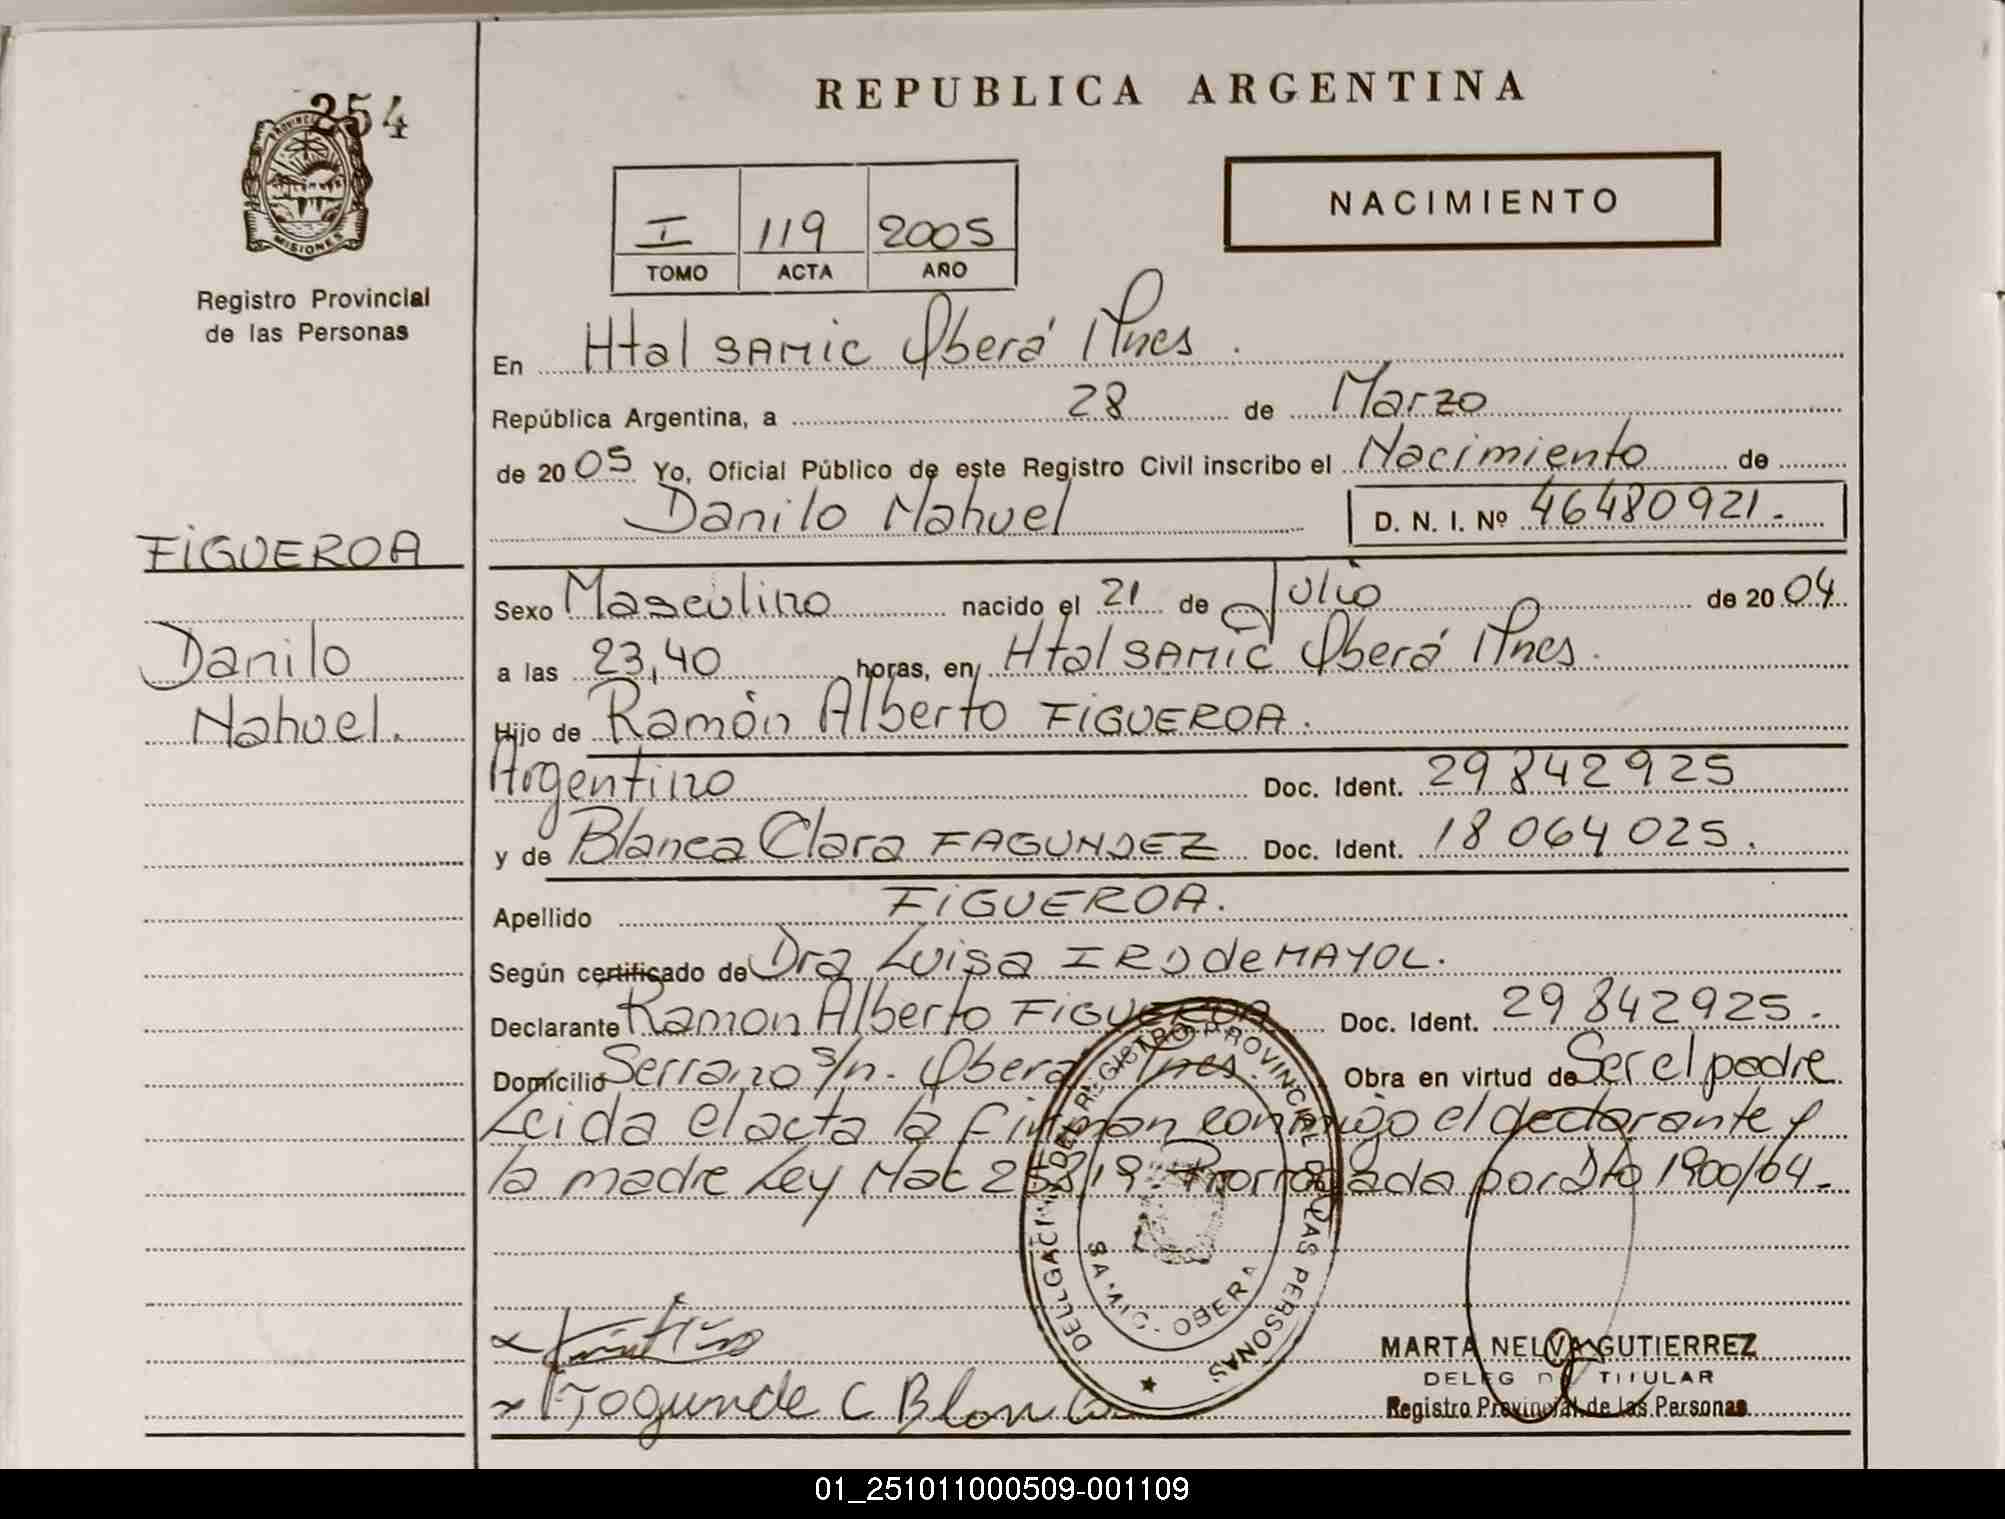 254
PROVINCIA
MISIONES
Registro Provincial
de las Personas
FIGUEROA
Danilo
Nahuel.
REPUBLICA ARGENTINA
NACIMIENTO
I 119 2005
TOMO ACTA AÑO
En Htal SAMIC Oberá Mnes.
República Argentina, a 28 de Marzo
de 2005 Yo, Oficial Público de este Registro Civil inscribo el Nacimiento de
Danilo Nahuel D. N. I. Nº 46480921.
Sexo Masculino nacido el 21 de Julio de 2004
a las 23,40 horas, en Htal SAMIC Oberá Mnes.
Hijo de Ramón Alberto FIGUEROA.
Argentino Doc. Ident. 29842925
y de Blanca Clara FAGUNDEZ Doc. Ident. 18064025.
Apellido FIGUEROA.
Según certificado de Dra Luisa IRO de MAYOL.
Declarante Ramon Alberto FIGUEROA Doc. Ident. 29842925.
Domicilio Serrano s/n. Oberá Mnes. Obra en virtud de Ser el padre
Leida el acta la firman conmigo el declarante y
la madre Ley Nac 25819 Prorrogada por Dto 1900/04.
DELEGACION DE REGISTRO PROVINCIAL DE LAS PERSONAS
SAMIC - OBERA
C Blanca
MARTA NELVA GUTIERREZ
DELEGADA TITULAR
Registro Provincial de las Personas
01_251011000509-001109